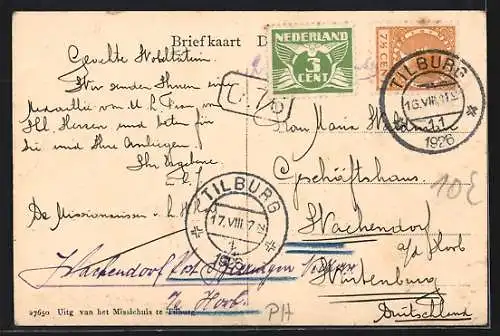 Briefkaart D
NEDERLAND
3
CENT
7½ CENT
TILBURG
16.VIII
11
1926
T. 75
Geehrte Wohltäterin.
Wir senden Ihnen eine
Medaillie von U. L. Frau vom
Hl. Herzen und beten für
Sie und Ihre Anliegen.
Ihr Ergebene
De Missionarissen
Frau Maria
Geschäftshaus.
Wachendorf
a/d Horb
Würtenburg
Deutschland
TILBURG
17.VIII
1
1926
Wachendorf Post Bieringen
in Horb
10E
PH
27650 Uitg van het Missiehuis te Tilburg